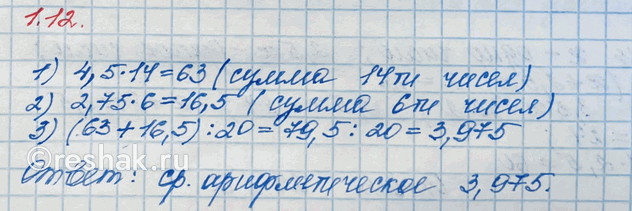 1.12.
1) 4,5·14=63 (сумма 14ти чисел)
2) 2,75·6=16,5 (сумма 6ти чисел)
3) (63+16,5):20=79,5:20=3,975
reshak.ru
Ответ: ср. арифметическое 3,975.